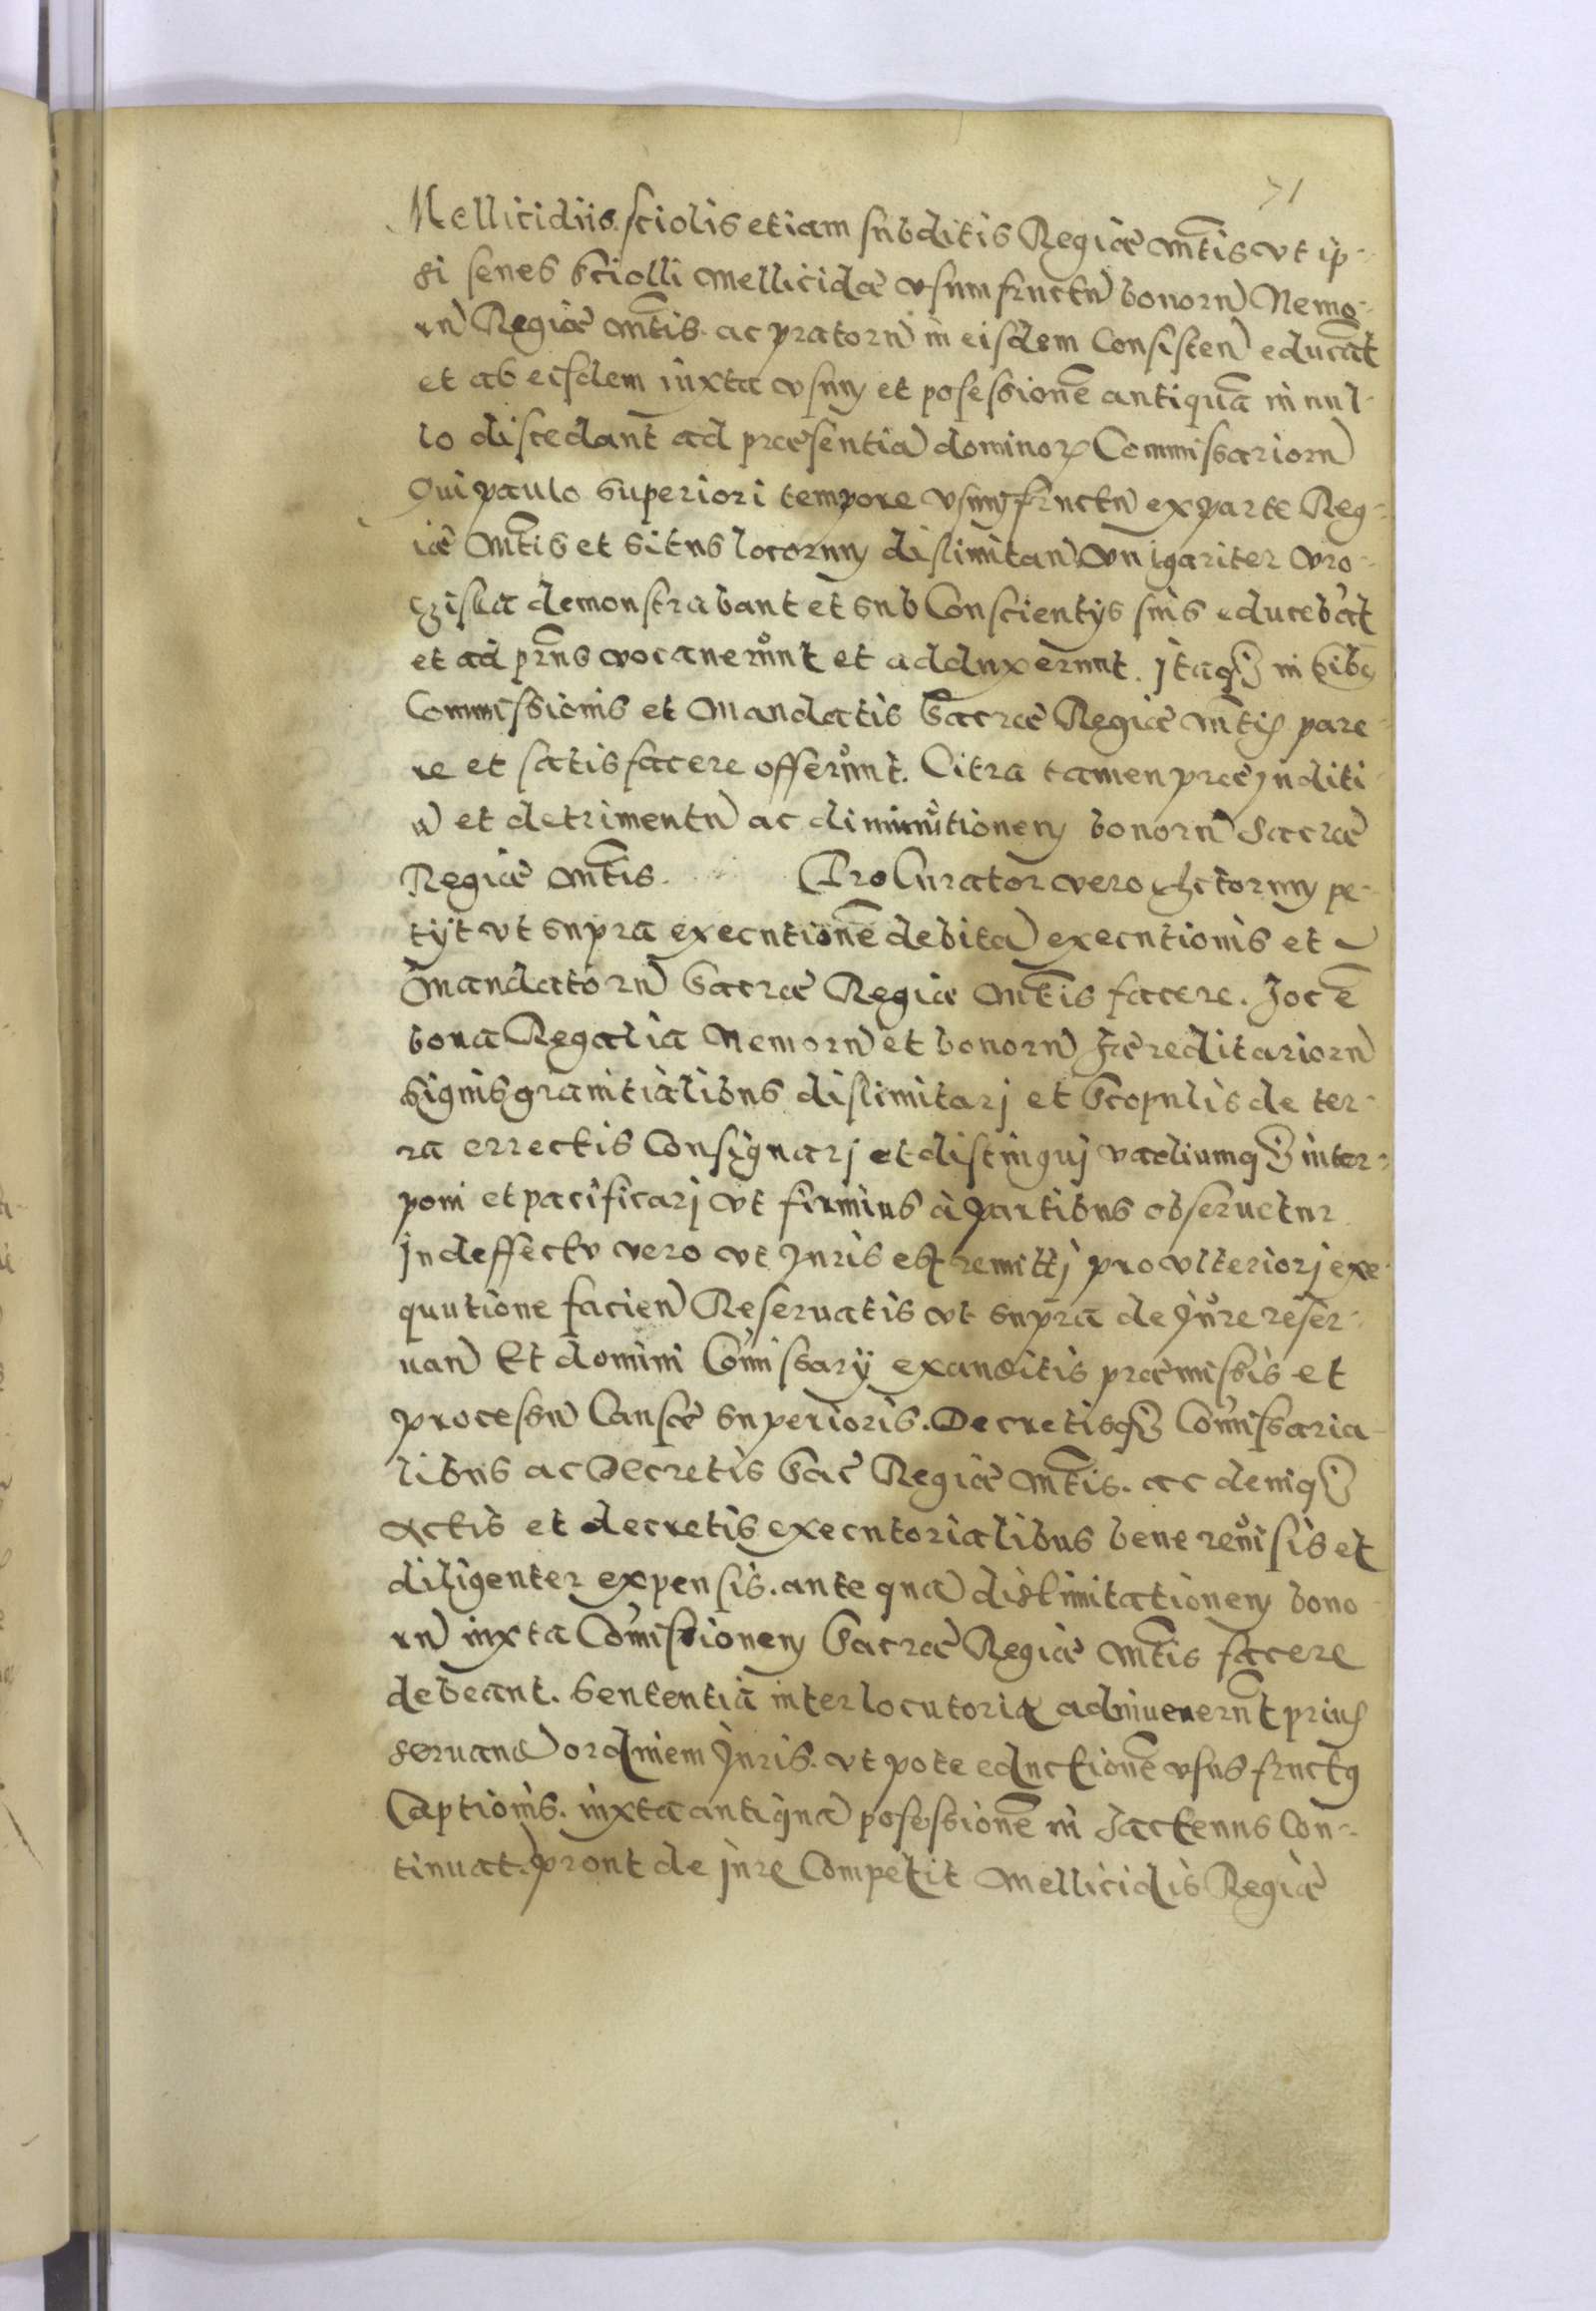 71
Mellicidiis sciolis etiam subditis Regiæ Mtis vt ip-
si senes Sciolli Mellicidæ vsumfructu bonoru Nemo-
ru Regiæ Mtis. ac pratoru in eisdem Consisten educat
et ab eisdem iuxta vsum et posessione antiqua in nul-
lo discedant ad præsentia dominor Commissarioru
Qui paulo superiori tempore vsumfructu ex parte Reg-
iæ Mtis et situs locorum dislimitan vro-
demonstrabant et sub Conscientys suis educebat
et ad prns vocauerunt et adduxerunt. Itaq in
Commissionis et Mandatis Sacræ Regiæ Mtis pare-
re et satisfacere offerunt. Citra tamen præiuditi
u et detrimentu ac diminutionem bonoru Sacræ
Regiæ Mtis. Procurator vero Actorum pe-
tyt vt supra executione debita executionis et
Mandatoru Sacræ Regiæ Mtis facere. Hoc e
bona Regalia Nemoru et bonoru Hæreditarioru
Signis granitialibus dislimitarj et Scopulis de ter-
ra errectis Consignarj et distinguj vadiumq inter-
poni et pacificarj vt firmius à partibus obseruetur
Jn deffectu vero vt Juris est remittj pro vlteriorj exe-
quutione facien Reseruatis vt supra de Jure reser-
uan Et domini Comissary exauditis præmissis et
processu Causæ superioris. Decretisq Comissaria-
libus ac Decretis Sac Regiæ Mtis. ac deniq
Actis et decretis executorialibus bene reuisis et
diligenter expensis. ante qua dislimitationem bono
ru iuxta Comissionem Sacræ Regiæ Mtis facere
debeant. Sententia interlocutoria adinuenernt prius
seruand ordinem Juris. vt pote eductione vsus fructus
Captionis. iuxta antiqua posessione in hactenus Con-
tinuat. prout de jure Competit Mellicidis Regiæ